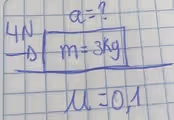 a=?
4N
m=3kg
μ=0,1